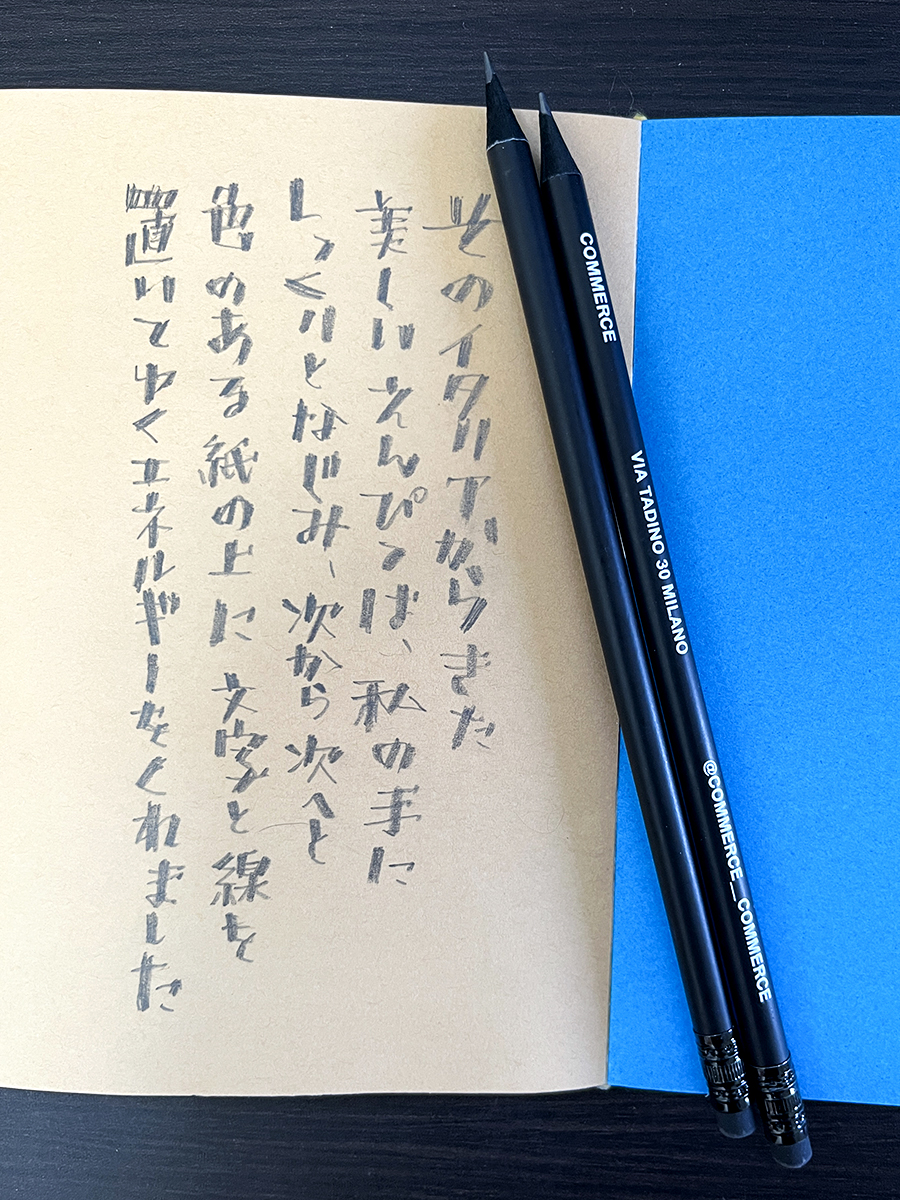 そのイタリアからきた
美しいえんぴつは、私の手に
しっくりとなじみ、次から次へと
色のある紙の上に文字と線を
置いてゆくエネルギーをくれました
COMMERCE
VIA TADINO 30 MILANO
@COMMERCE__COMMERCE